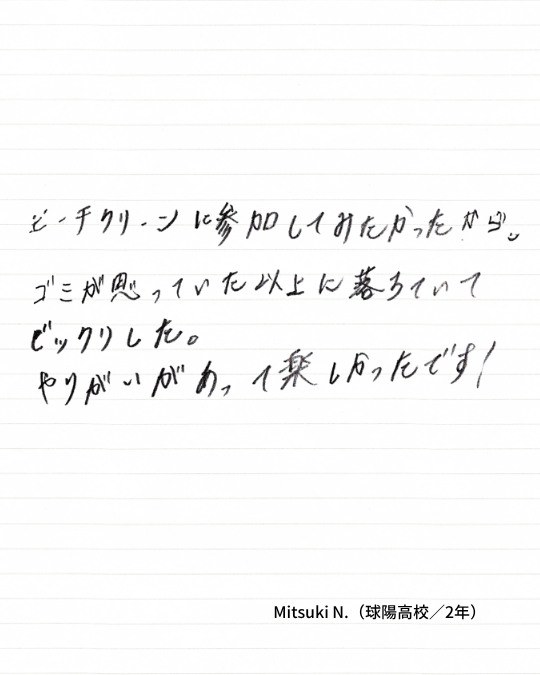 ビーチクリーンに参加してみたかったから。
ゴミが思っていた以上に落ちていて
ビックリした。
やりがいがあって楽しかったです!
Mitsuki N.（球陽高校／2年）